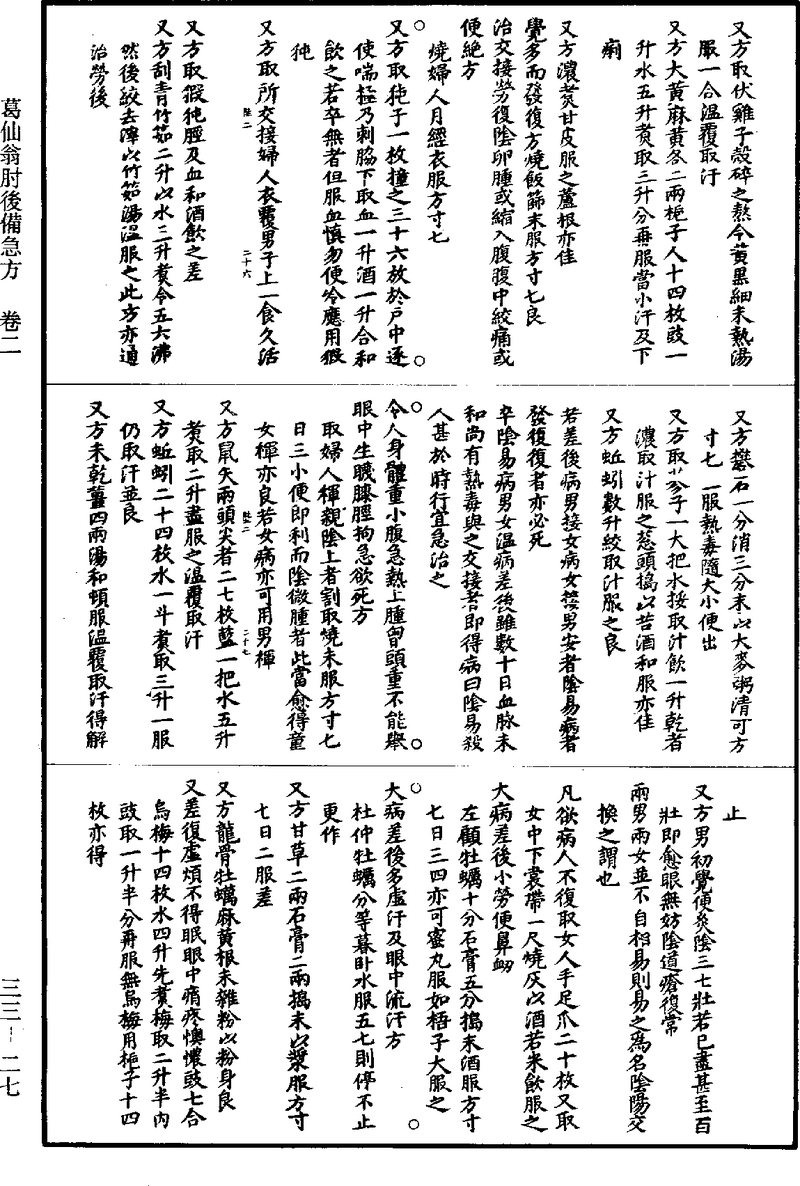 又方取伏雞子殼碎之熬令黃黑細末熱湯
服一合溫覆取汗
又方大黃麻黃各二兩梔子人十四枚豉一
升水五升煮取三升分再服當小汗及下
痢
又方濃煮甘皮服之蘆根亦佳
覺多而發復方燒飯篩末服方寸匕良
治交接勞復陰卵腫或縮入腹腹中絞痛或
便絕方
燒婦人月經衣服方寸匕
又方取㹠子一枚撞之三十六放於戶中逐
使喘極乃刺脇下取血一升酒一升合和
飲之若卒無者但服血慎勿便冷應用猳
㹠
又方取所交接婦人衣覆男子上一食久活
陸二
二十六
又方取猳㹠脛及血和酒飲之差
又方刮青竹茹二升以水三升煮令五六沸
然後絞去滓以竹茹湯溫服之此方亦通
治勞復
又方礬石一分消三分末以大麥粥清可方
寸匕一服熱毒隨大小便出
又方取蔘子一大把水挼取汁飲一升乾者
濃取汁服之葱頭搗以苦酒和服亦佳
又方蚯蚓數升絞取汁服之良
若差後病男接女病女接男安者陰易病者
發復復者亦必死
卒陰易病男女溫病差後雖數十日血脉未
和尚有熱毒與之交接者即得病曰陰易殺
人甚於時行宜急治之
令人身體重小腹急熱上腫胷頭重不能舉
眼中生䁾膝脛拘急欲死方
取婦人褌親陰上者割取燒末服方寸匕
日三小便即利而陰微腫者此當愈得童
女褌亦良若女病亦可用男褌
又方鼠矢兩頭尖者二七枚藍一把水五升
陸二
二十七
煮取二升盡服之溫覆取汗
又方蚯蚓二十四枚水一斗煮取三升一服
仍取汗並良
又方末乾薑四兩湯和頓服溫覆取汗得解
止
又方男初覺便灸陰三七壯若已盡甚至百
壯即愈眼無妨陰道瘡復常
兩男兩女並不自相易則易之為名陰陽交
換之謂也
凡欲病人不復取女人手足爪二十枚又取
女中下裳帶一尺燒灰以酒若米飲服之
大病差後小勞便鼻衂
左顧牡蠣十分石膏五分搗末酒服方寸
七日三四亦可蜜丸服如梧子大服之
大病差後多虛汗及眼中流汗方
杜仲牡蠣分等暮臥水服五匕則停不止
更作
又方甘草二兩石膏二兩搗末以漿服方寸
匕日二服差
又方龍骨牡蠣麻黃根末雜粉以粉身良
又差復虛煩不得眠眼中痟疼懊憹豉七合
烏梅十四枚水四升先煮梅取二升半內
豉取一升半分再服無烏梅用梔子十四
枚亦得
葛仙翁肘後備急方　卷二
三三-二七